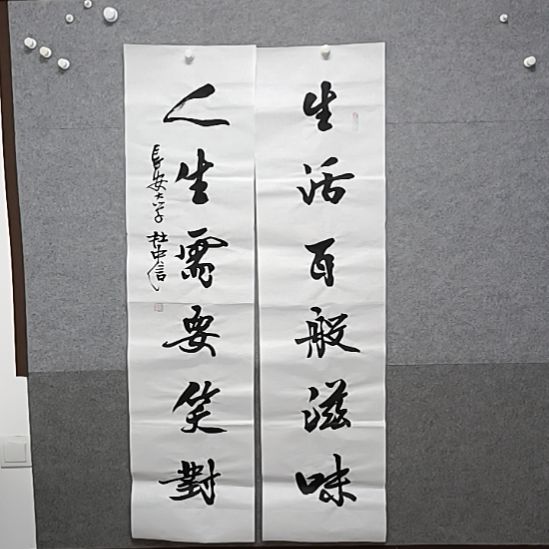 生活百般滋味
人生需要笑對
長安大学 杜中信